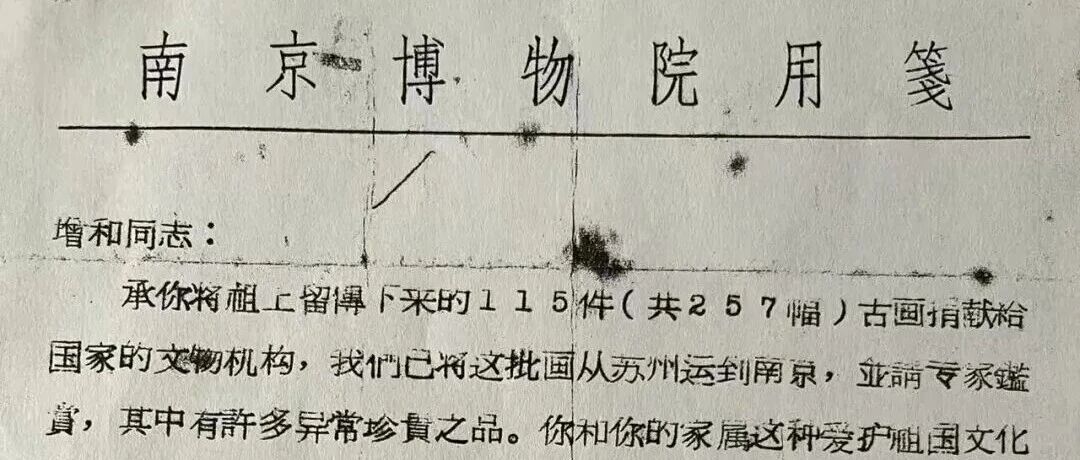 南京博物院用箋
增和同志：
承你将祖上留傳下来的115件(共257幅)古画捐献給
国家的文物机构，我們已将这批画从苏州运到南京，並請专家鑑
賞，其中有許多异常珍貴之品。你和你的家属这种爱护祖国文化